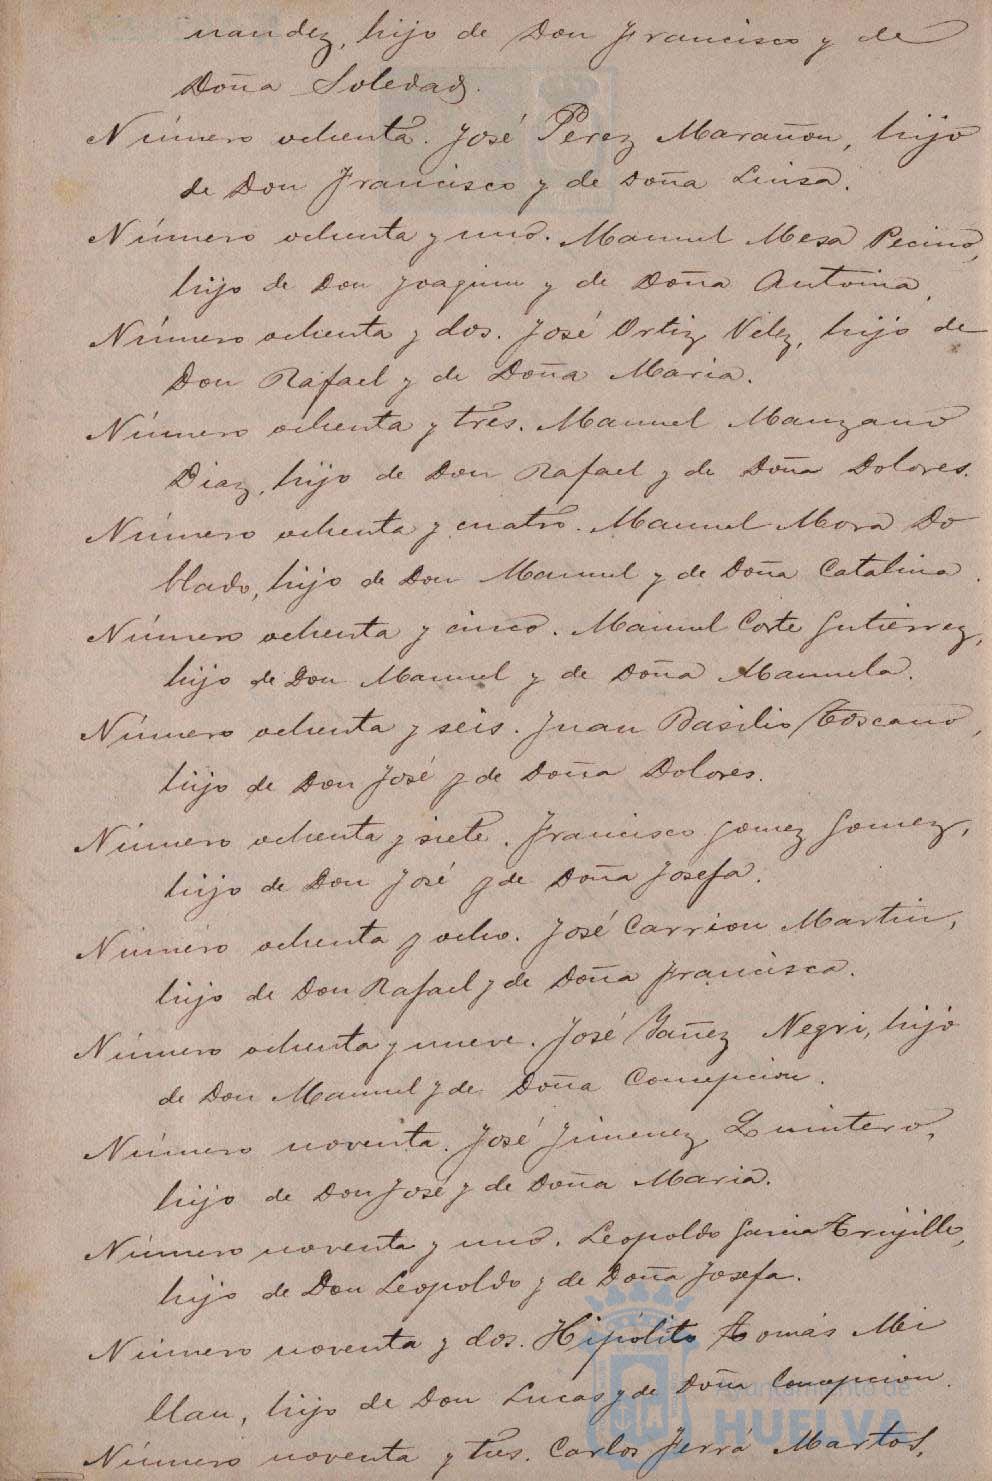 nandez, hijo de Don Francisco y de
Doña Soledad.
Número ochenta. José Perez Marañon, hijo
de Don Francisco y de Doña Luisa.
Número ochenta y uno. Manuel Mesa Pecino,
hijo de Don Joaquin y de Doña Antonia,
Número ochenta y dos. José Ortiz Velez, hijo de
Don Rafael y de Doña Maria.
Número ochenta y tres. Manuel Manzano
Diaz, hijo de Don Rafael y de Doña Dolores.
Número ochenta y cuatro. Manuel Mora Do
blado, hijo de Don Manuel y de Doña Catalina.
Número ochenta y cinco. Manuel Corte Gutierrez,
hijo de Don Manuel y de Doña Manuela.
Número ochenta y seis. Juan Basilio Toscano,
hijo de Don José y de Doña Dolores.
Número ochenta y siete. Francisco Gomez Gomez,
hijo de Don José y de Doña Josefa.
Número ochenta y ocho. José Carrion Martin,
hijo de Don Rafael y de Doña Francisca.
Número ochenta y nueve. José Yañez Negri, hijo
de Don Manuel y de Doña Concepcion.
Número noventa. José Jimenez Quintero,
hijo de Don José y de Doña Maria.
Número noventa y uno. Leopoldo Garcia Trujillo,
hijo de Don Leopoldo y de Doña Josefa.
Número noventa y dos. Hipólito Tomás Mi
llan, hijo de Don Lucas y de Doña Concepcion.
Número noventa y tres. Carlos Ferrá Martos,
Ayuntamiento de
HUELVA